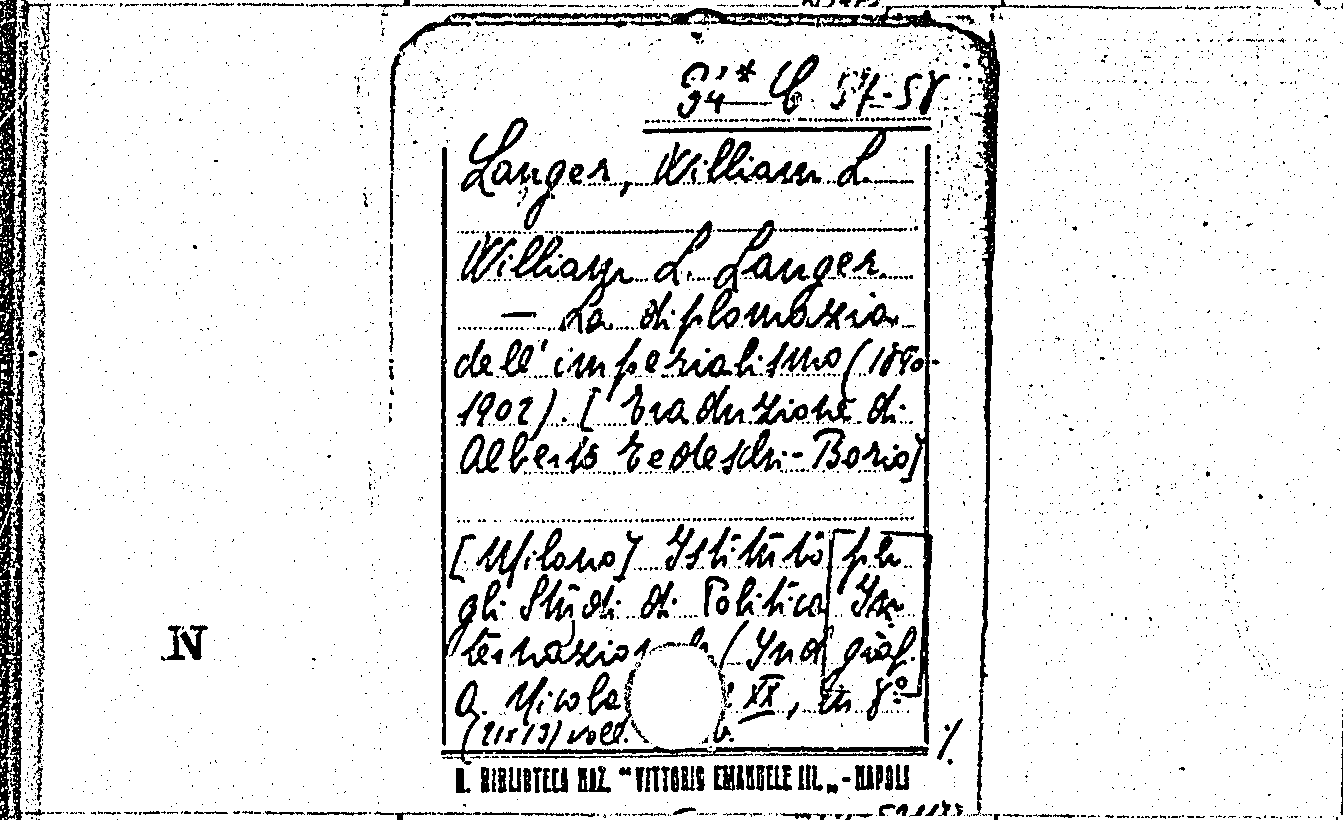 C 57-58
Langer, William L.
William L. Langer
— La diplomazia
dell'imperialismo (1890-
1902). [Traduzione di
Alberto Tedeschi-Borio]
[Milano] Istituto per
gli Studi di Politica In
ternazio (Ind graf.
A. Nicola XX, in 8°
(21x13) voll.
R. BIBLIOTECA NAZ. "VITTORIO EMANUELE III." - NAPOLI
N